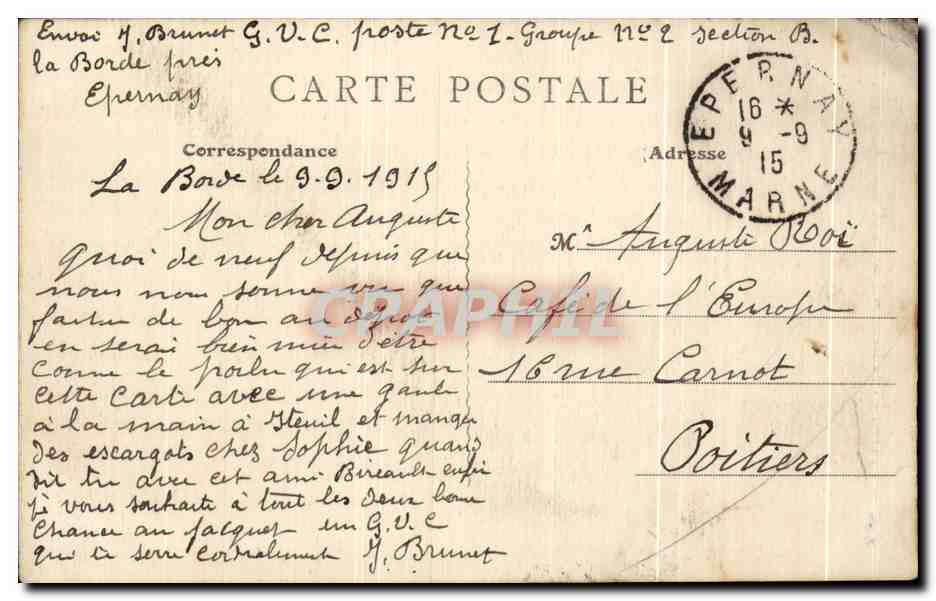 Envoi J. Brunet G.V.C. poste No 1 - Groupe No 2 section B.
la Borde près
Epernay
CARTE POSTALE
EPERNAY
16 *
9 -9
15
MARNE
Correspondance
Adresse
La Borde le 9.9.1915
Mon cher Auguste
Quoi de neuf depuis que
nous nous somme vu que
de bon au dépot
en serai bien mieu d'être
comme le poilu qui est sur
cette carte avec une gaule
à la main à Iteuil et manger
des escargots chez Sophie quand
dit tu avec cet ami Bireault enfin
je vous souhaite à tout les deux bonne
chance au jacquet un G.V.C
qui te serre cordialement J. Brunet
Mr Auguste Roï
Café de l'Europe
16 rue Carnot
Poitiers
CRAPHIL